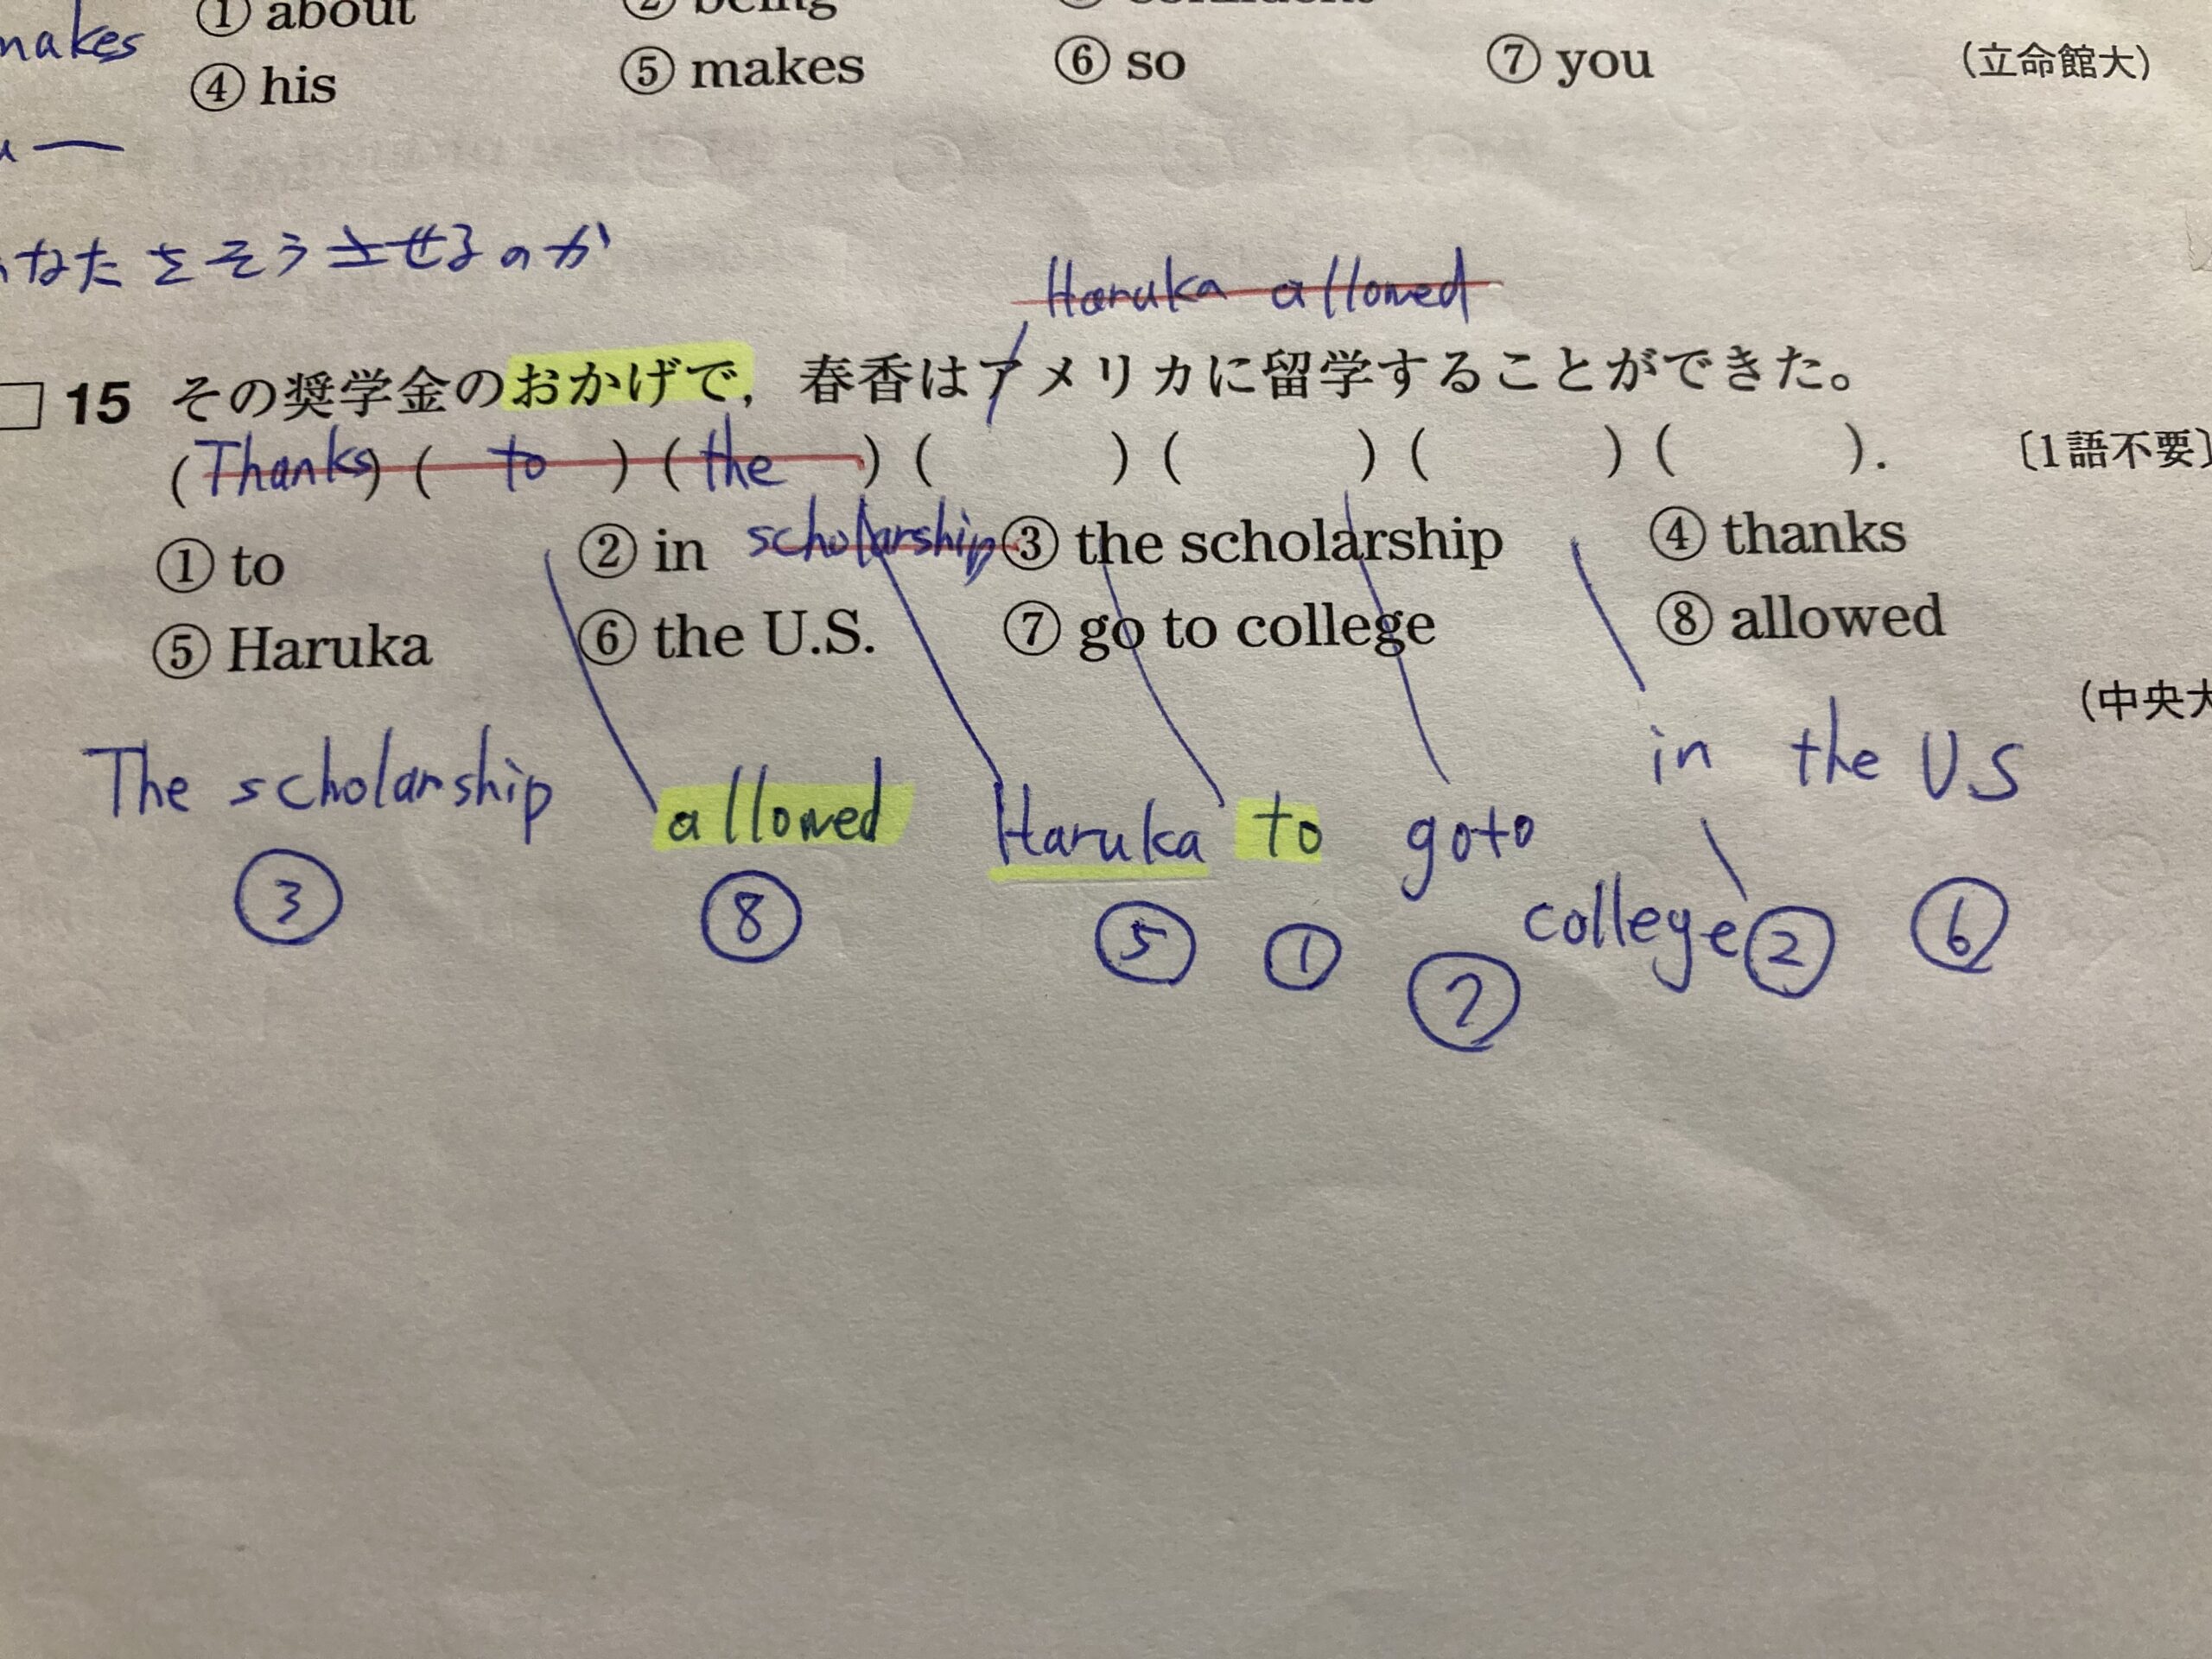 ① about ② being
makes
④ his ⑤ makes ⑥ so ⑦ you (立命館大)
なたをそうさせるのか
Haruka allowed
15 その奨学金のおかげで，春香はアメリカに留学することができた。
(Thanks) ( to ) ( the ) ( ) ( ) ( ) ( ). 〔1語不要〕
scholarship
① to ② in ③ the scholarship ④ thanks
⑤ Haruka ⑥ the U.S. ⑦ go to college ⑧ allowed
(中央大
The scholarship allowed Haruka to goto college in the U.S
③ ⑧ ⑤ ① ⑦ ② ⑥